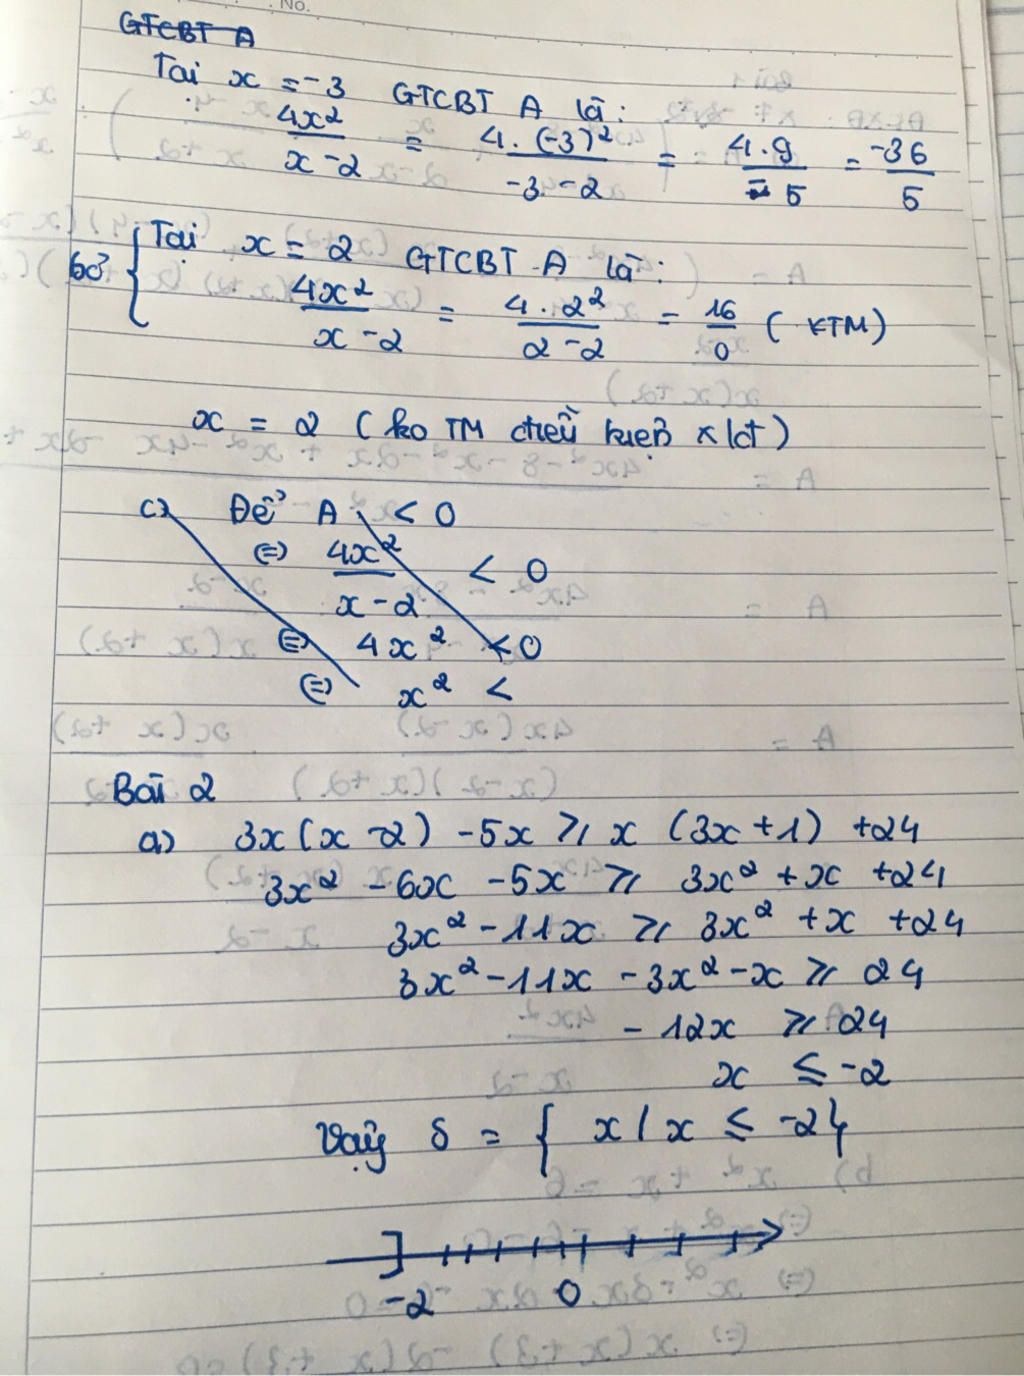 No.
GTCBT A
Tại x = -3 GTCBT A là:
4x²/(x - 2) = 4.(-3)²/(-3 - 2) = 4.9/-5 = -36/5
bỏ { Tại x = 2 GTCBT A là:
4x²/(x - 2) = 4.2²/(2 - 2) = 16/0 (KTM)
x = 2 (ko TM điều kiện xlđ)
c) Để A < 0
(=) 4x²/(x - 2) < 0
(=) 4x² < 0
(=) x² <
Bài 2
a) 3x(x - 2) - 5x ≥ x (3x + 1) + 24
3x² - 6x - 5x ≥ 3x² + x + 24
3x² - 11x ≥ 3x² + x + 24
3x² - 11x - 3x² - x ≥ 24
- 12x ≥ 24
x ≤ -2
Vậy S = { x / x ≤ -2 }
-2 0